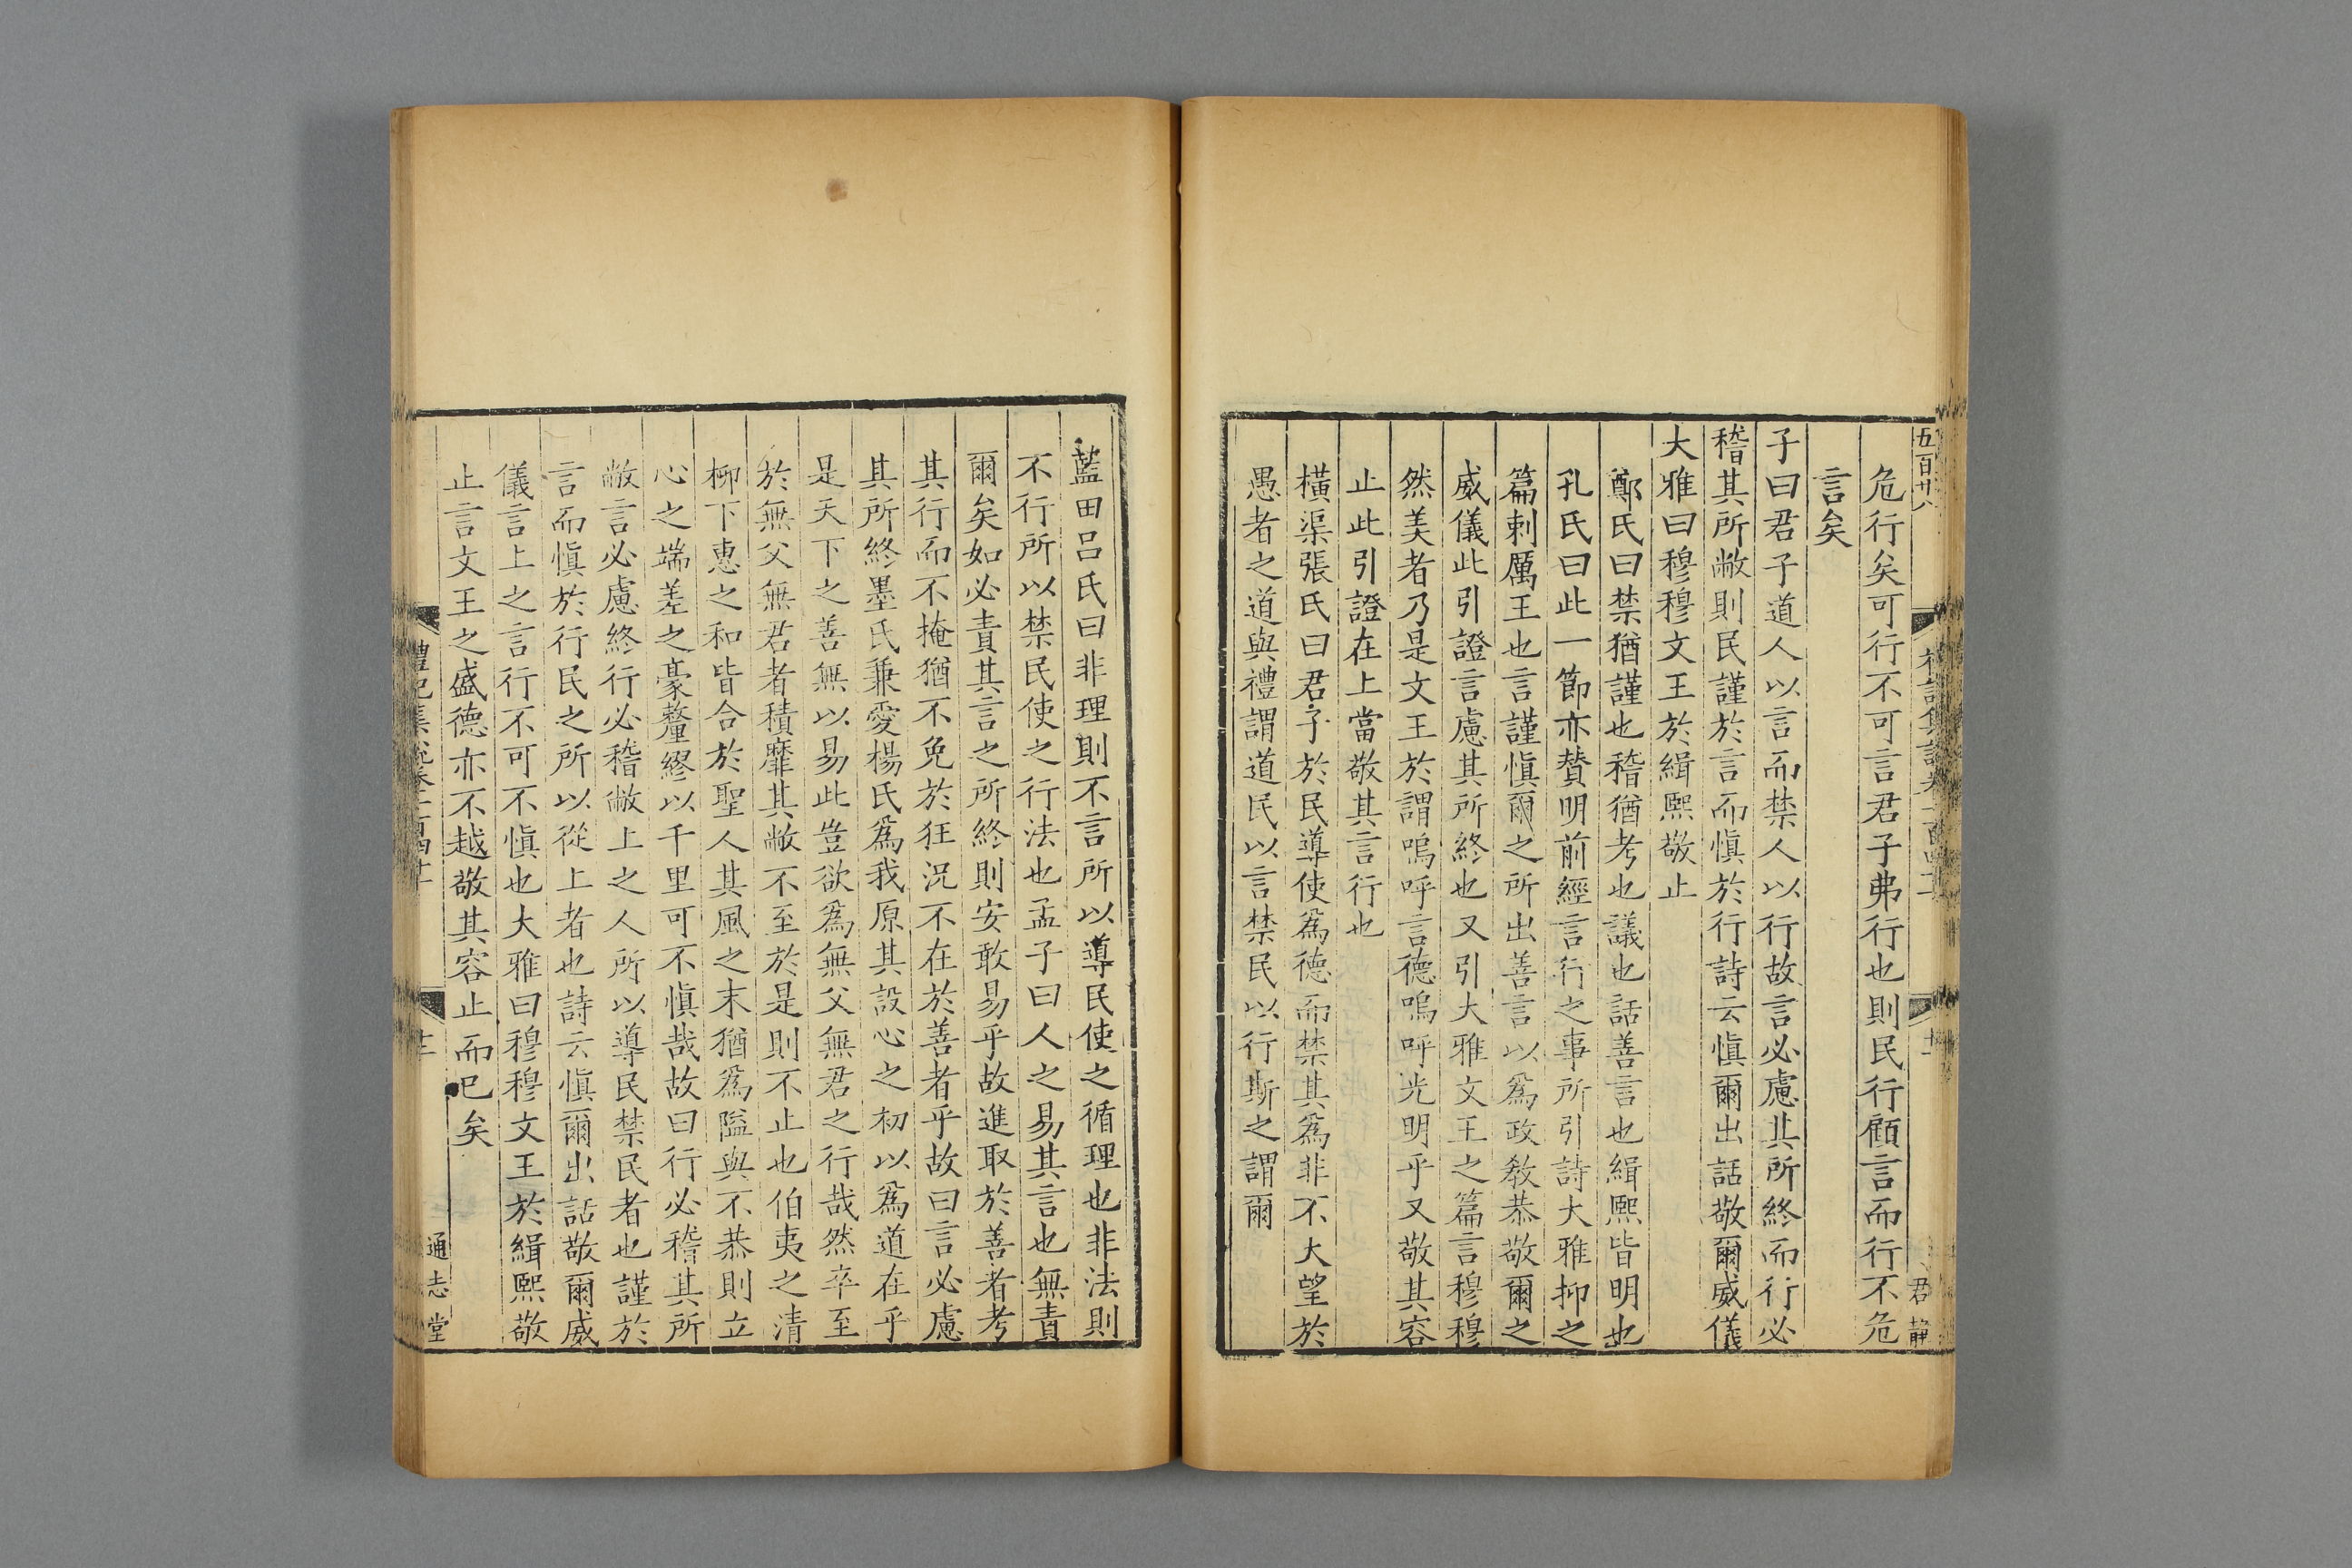 五百廿八
危行矣可行不可言君子弗行也則民行顧言而行不危
言矣
子曰君子道人以言而禁人以行故言必慮其所終而行必
稽其所敝則民謹於言而慎於行詩云慎爾出話敬爾威儀
大雅曰穆穆文王於緝熙敬止
鄭氏曰禁猶謹也稽猶考也議也話善言也緝熙皆明也
孔氏曰此一節亦賛明前經言行之事所引詩大雅抑之
篇刺厲王也言謹慎爾之所出善言以為政教恭敬爾之
威儀此引證言慮其所終也又引大雅文王之篇言穆穆
然美者乃是文王於謂嗚呼言德嗚呼光明乎又敬其容
止此引證在上當敬其言行也
橫渠張氏曰君子於民導使為德而禁其為非不大望於
愚者之道與禮謂道民以言禁民以行斯之謂爾
君靜
藍田呂氏曰非理則不言所以導民使之循理也非法則
不行所以禁民使之行法也孟子曰人之易其言也無責
爾矣如必責其言之所終則安敢易乎故進取於善者考
其行而不掩猶不免於狂況不在於善者乎故曰言必慮
其所終墨氏兼愛楊氏為我原其設心之初以為道在乎
是天下之善無以易此豈欲為無父無君之行哉然卒至
於無父無君者積靡其敝不至於是則不止也伯夷之清
柳下惠之和皆合於聖人其風之末猶為隘與不恭則立
心之端差之豪釐繆以千里可不慎哉故曰行必稽其所
敝言必慮終行必稽敝上之人所以導民禁民者也謹於
言而慎於行民之所以從上者也詩云慎爾出話敬爾威
儀言上之言行不可不慎也大雅曰穆穆文王於緝熙敬
止言文王之盛德亦不越敬其容止而已矣
通志堂